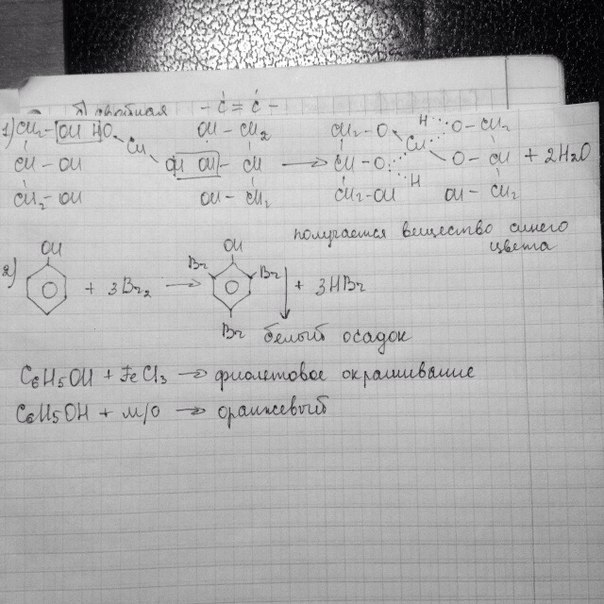 двойная - C = C -
1) CH₂ - OH HO OH - CH₂ CH₂ - O H O - CH₂
Cu Cu
CH - OH OH OH - CH → CH - O O - CH + 2H₂O
H
CH₂ - OH OH - CH₂ CH₂ - OH OH - CH₂
получается вещество синего
цвета
OH OH
2) + 3Br₂ → Br Br ↓ + 3HBr
Br белый осадок
C₆H₅OH + FeCl₃ → фиолетовое окрашивание
C₆H₅OH + м/о → оранжевый